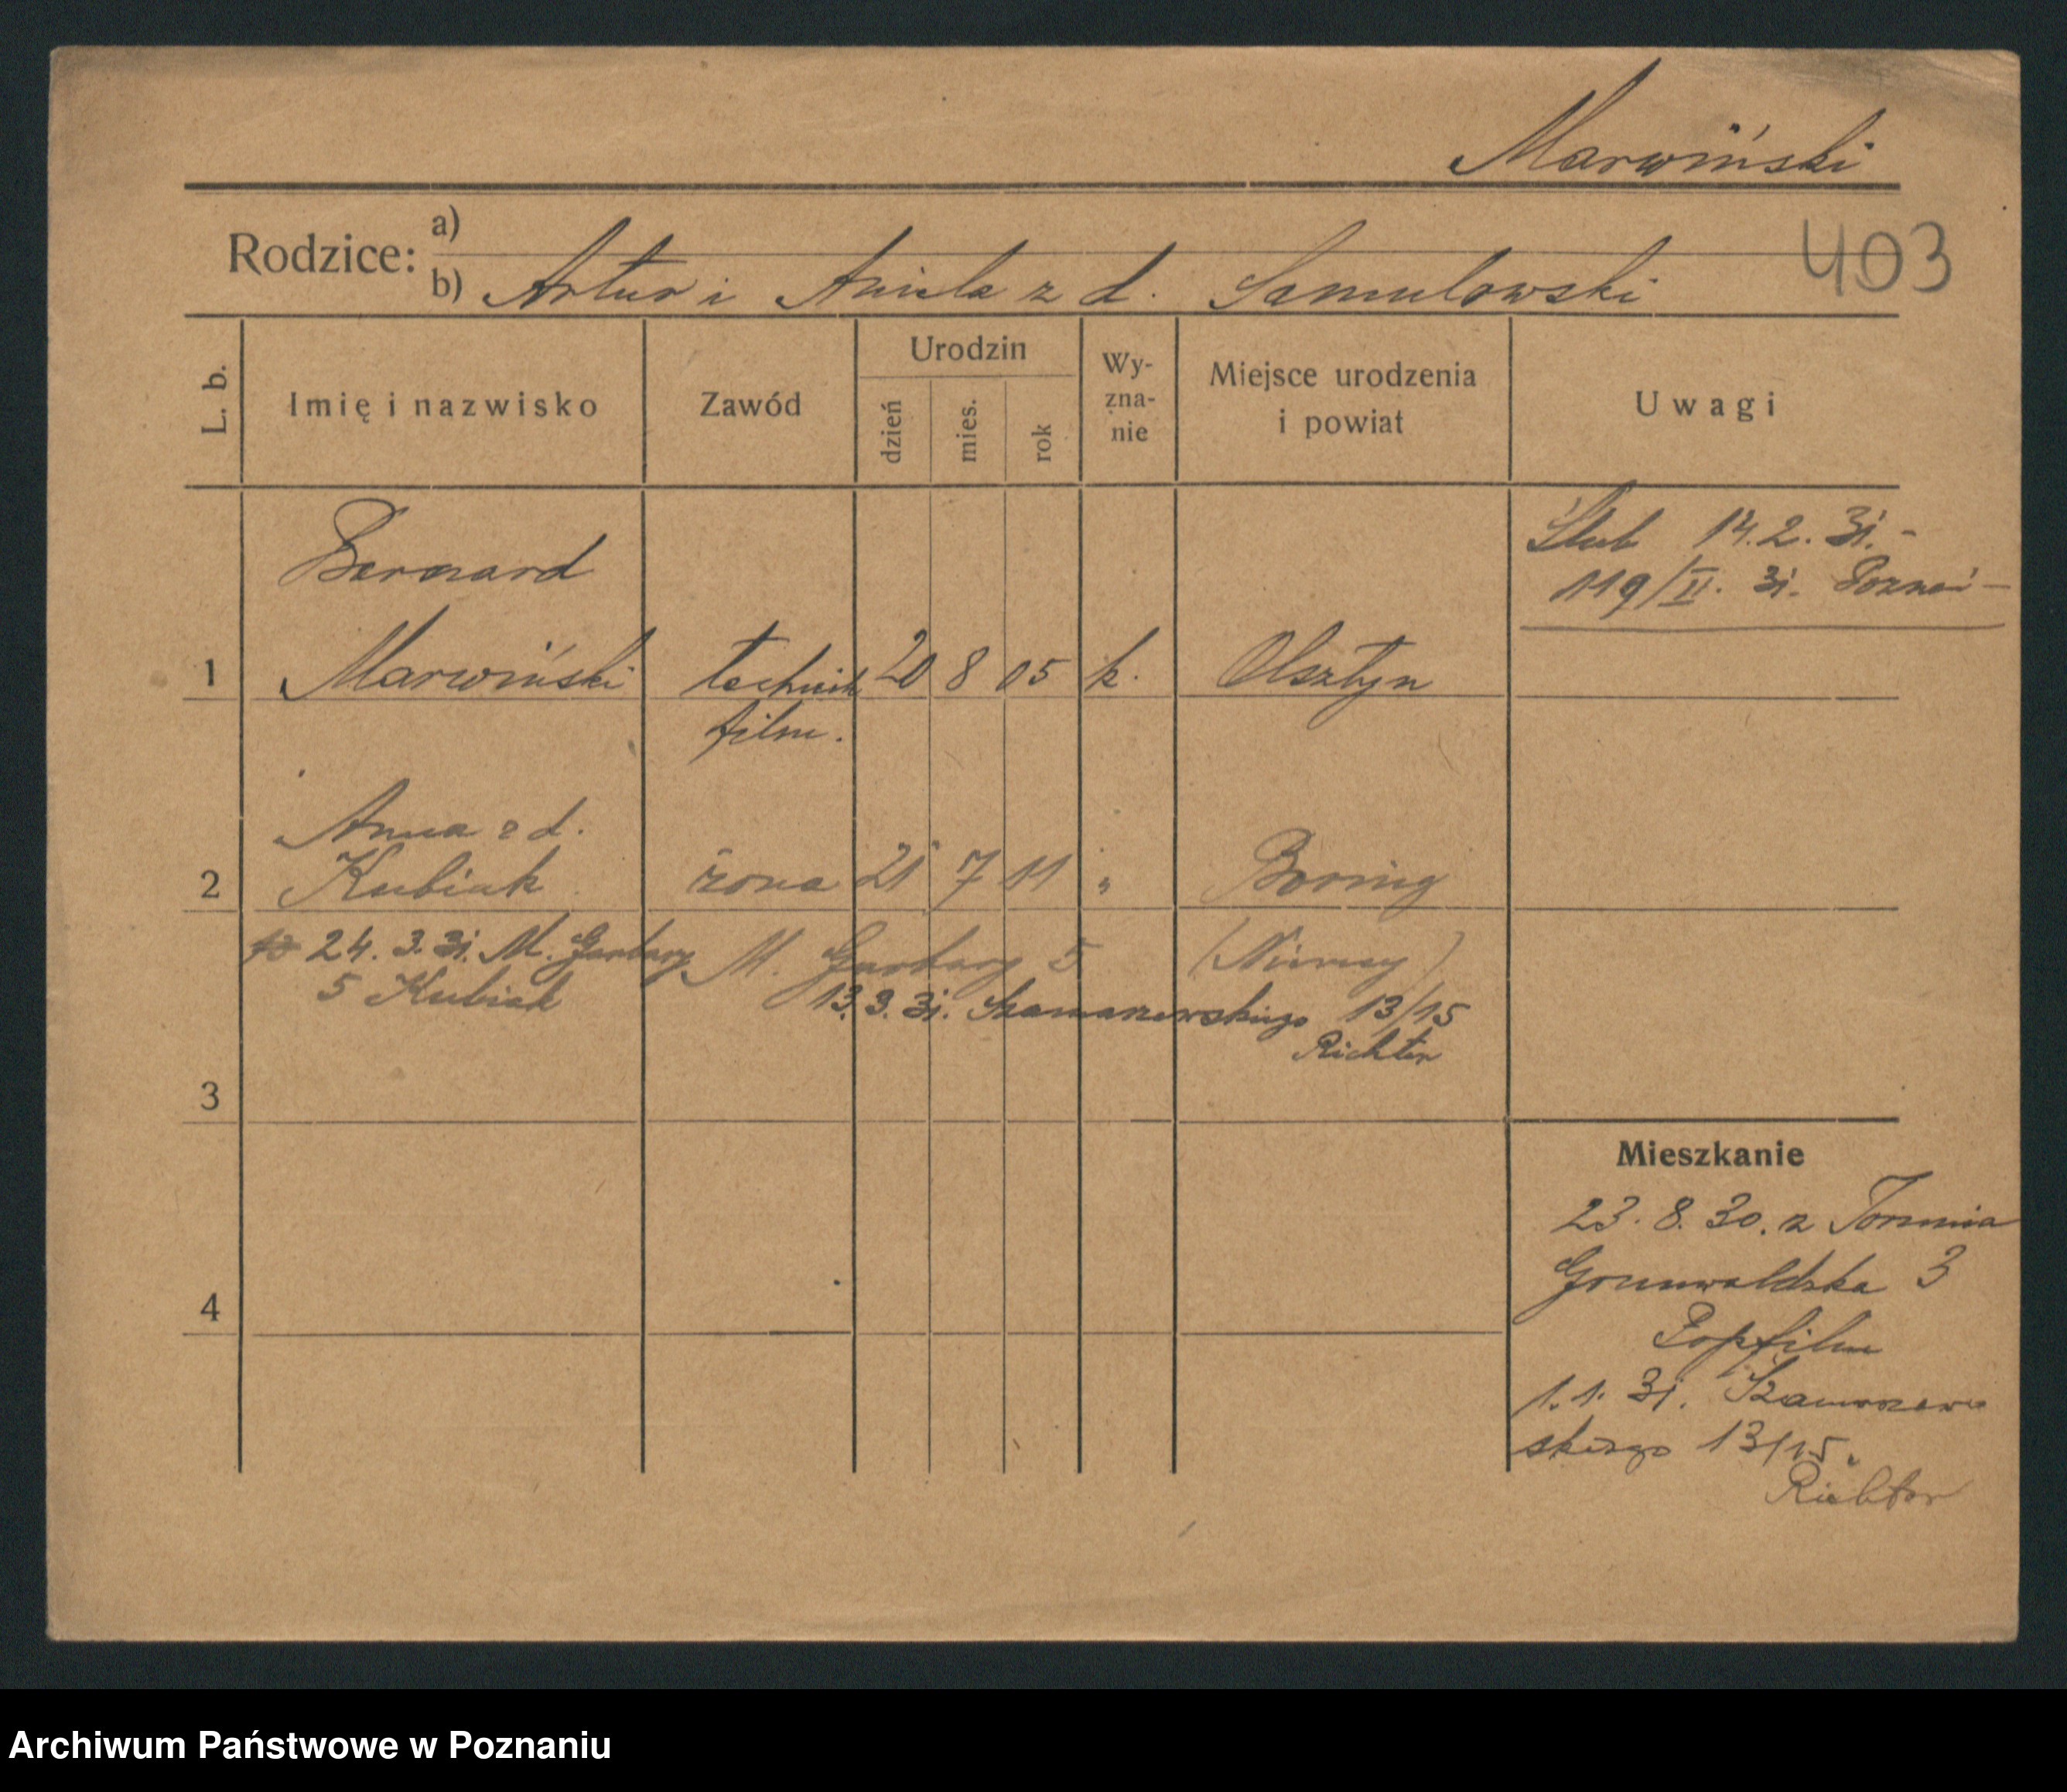 Marwiński
403
Rodzice:
a)
b) Artur i Aniela z d. Samulowski
L. b.
Imię i nazwisko
Zawód
Urodzin
dzień
mies.
rok
Wy-
zna-
nie
Miejsce urodzenia
i powiat
Uwagi
Bernard
Ślub 14.2.31.-
119/II. 31. Poznań-
1 Marwiński technik 20 8 05 k. Olsztyn
film.
Anna z d.
2 Kubiak żona 21 7 11 " Boring
24. 3. 31. M. Garbary
5 Kubiak
M. Garbary 5 (Niemcy)
13. 3. 31. Szamarzewskiego 13/15
Richter
3
4
Mieszkanie
23. 8. 30. z Torunia
Grunwaldzka 3
Popfilm
1. 1. 31. Szamarzew-
skiego 13/15.
Richter
Archiwum Państwowe w Poznaniu